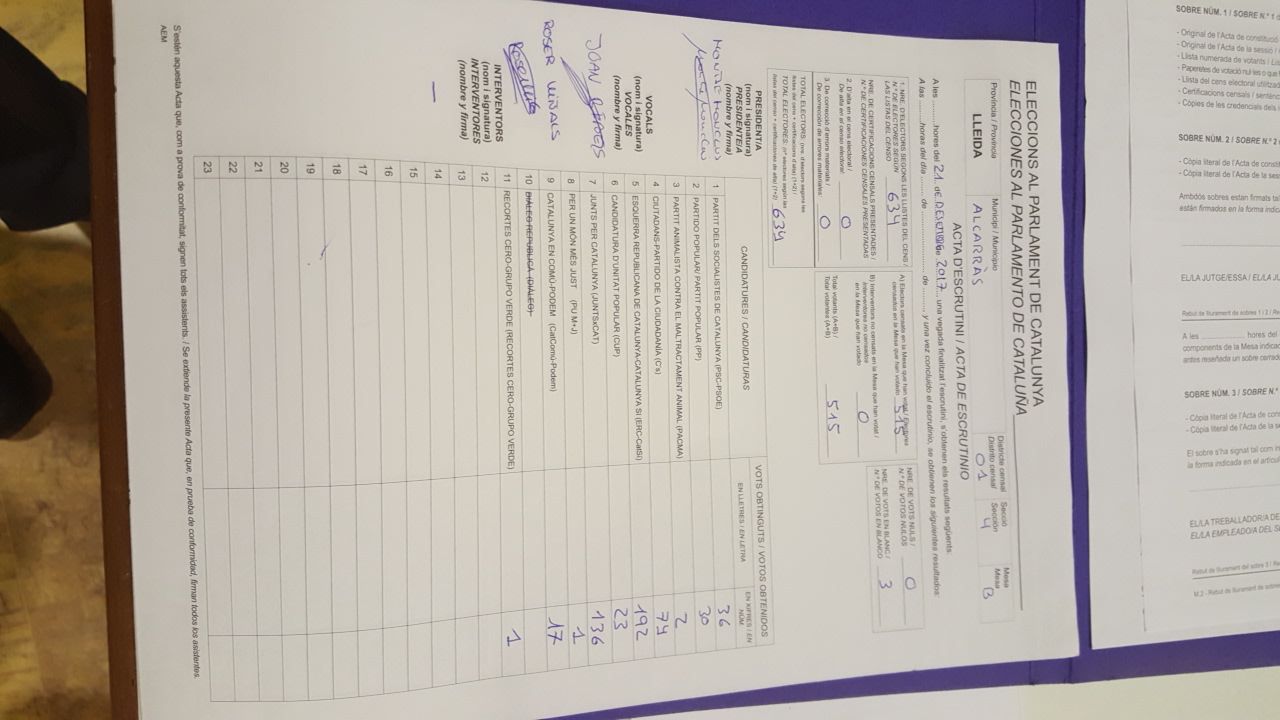 ELECCIONS AL PARLAMENT DE CATALUNYA
ELECCIONES AL PARLAMENTO DE CATALUÑA
Província / Provincia
LLEIDA
Municipi / Municipio
ALCARRÀS
Districte censal
Distrito censal
01
Secció
Sección
4
Mesa
Mesa
B
ACTA D'ESCRUTINI / ACTA DE ESCRUTINIO
A les ......... hores del 21 de DESEMBRE 2017 una vegada finalitzat l'escrutini, s'obtenen els resultats següents:
A las ......... horas del día ......... de ......... de ......... y una vez concluido el escrutinio, se obtienen los siguientes resultados:
1. NRE. D'ELECTORS SEGONS LES LLISTES DEL CENS /
N.º DE ELECTORES SEGÚN
LAS LISTAS DEL CENSO
634
NRE. DE CERTIFICACIONS CENSALS PRESENTADES /
N.º DE CERTIFICACIONES CENSALES PRESENTADAS
2. D'alta en el cens electoral /
De alta en el censo electoral:
0
3. De correcció d'errors materials /
De corrección de errores materiales:
0
TOTAL ELECTORS: (nre. d'electors segons les
llistes del cens + certificacions d'alta) (1+2) /
TOTAL ELECTORES: (n.º electores según las
listas del censo + certificaciones de alta) (1+2)
634
A) Electors censats en la Mesa que han votat / Electores
censados en la Mesa que han votado
515
B) Interventors no censats en la Mesa que han votat /
Interventores no censados
en la Mesa que han votado
0
Total votants (A+B) /
Total votantes (A+B)
515
NRE. DE VOTS NULS /
N.º DE VOTOS NULOS
0
NRE. DE VOTS EN BLANC /
N.º DE VOTOS EN BLANCO
3
CANDIDATURES / CANDIDATURAS
VOTS OBTINGUTS / VOTOS OBTENIDOS
EN LLETRES / EN LETRA
EN XIFRES / EN NÚM.
1 PARTIT DELS SOCIALISTES DE CATALUNYA (PSC-PSOE) 36
2 PARTIDO POPULAR/ PARTIT POPULAR (PP) 30
3 PARTIT ANIMALISTA CONTRA EL MALTRACTAMENT ANIMAL (PACMA) 2
4 CIUTADANS-PARTIDO DE LA CIUDADANÍA (C's) 74
5 ESQUERRA REPUBLICANA DE CATALUNYA-CATALUNYA SÍ (ERC-CatSí) 192
6 CANDIDATURA D'UNITAT POPULAR (CUP) 23
7 JUNTS PER CATALUNYA (JUNTSxCAT) 136
8 PER UN MÓN MÉS JUST (PU M+J) 1
9 CATALUNYA EN COMÚ-PODEM (CatComú-Podem) 17
10 DIÀLEG REPUBLICÀ (DIÀLEG)
11 RECORTES CERO-GRUPO VERDE (RECORTES CERO-GRUPO VERDE) 1
12
13
14
15
16
17
18
19
20
21
22
23
PRESIDENT/A
(nom i signatura)
PRESIDENTE/A
(nombre y firma)
VOCALS
(nom i signatura)
VOCALES
(nombre y firma)
JOAN
ROSER VIÑALS
INTERVENTORS
(nom i signatura)
INTERVENTORES
(nombre y firma)
S'estén aquesta Acta que, com a prova de conformitat, signen tots els assistents. / Se extiende la presente Acta que, en prueba de conformidad, firman todos los asistentes.
AEM
SOBRE NÚM. 1 / SOBRE N.º 1
- Original de l'Acta de constitució
- Original de l'Acta de la sessió
- Llista numerada de votants
- Paperetes de votació nul·les o que
- Llista del cens electoral utilitzada
- Certificacions censals i
- Còpies de les credencials dels
SOBRE NÚM. 2 / SOBRE N.º 2
- Còpia literal de l'Acta de
- Còpia literal de l'Acta de la
Ambdós sobres estan firmats
están firmados en la forma
EL/LA JUTGE/ESSA / EL/LA
Rebut de lliurament del sobre 1 i 2 /
A les ......... hores del
components de la Mesa
antes reseñada un sobre
SOBRE NÚM. 3 / SOBRE N.º
- Còpia literal de l'Acta de
- Còpia literal de l'Acta de la
El sobre s'ha signat tal com
la forma indicada en el
EL/LA TREBALLADOR/A DE
EL/LA EMPLEADO/A DEL
Rebut de lliurament del sobre 3 /
M.2 - Rebut de lliurament de